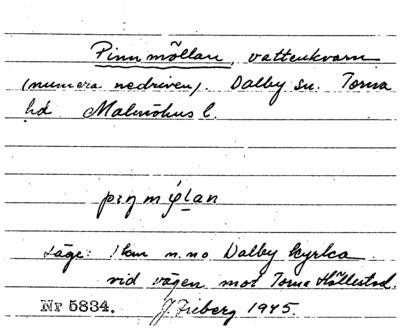 Pinnmöllan, vattenkvarn
(numera nedriven). Dalby sn. Torna
hd Malmöhus l.
Läge: 1 km n.no Dalby kyrka
vid vägen mot Torna Hällestad.
Nr 5834. J. Fieberg 1945.